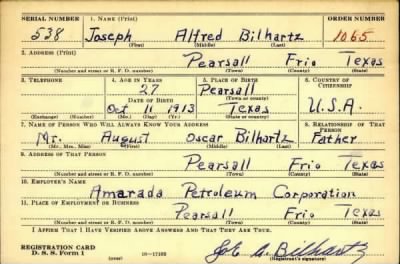 SERIAL NUMBER 1. NAME (Print) ORDER NUMBER
538 Joseph Alfred Bilhartz 1065
(First) (Middle) (Last)
2. ADDRESS (Print)
Pearsall Frio Texas
(Number and street or R. F. D. number) (Town) (County) (State)
3. TELEPHONE 4. AGE IN YEARS 5. PLACE OF BIRTH 6. COUNTRY OF CITIZENSHIP
27 Pearsall
DATE OF BIRTH (Town or county)
Oct 11 1913 Texas U.S.A.
(Exchange) (Number) (Mo.) (Day) (Yr.) (State or country)
7. NAME OF PERSON WHO WILL ALWAYS KNOW YOUR ADDRESS 8. RELATIONSHIP OF THAT PERSON
Mr. August Oscar Bilhartz Father
(Mr., Mrs., Miss) (First) (Middle) (Last)
9. ADDRESS OF THAT PERSON
Pearsall Frio Texas
(Number and street or R. F. D. number) (Town) (County) (State)
10. EMPLOYER'S NAME
Amarada Petroleum Corporation
11. PLACE OF EMPLOYMENT OR BUSINESS
Pearsall Frio Texas
(Number and street or R. F. D. number) (Town) (County) (State)
I AFFIRM THAT I HAVE VERIFIED ABOVE ANSWERS AND THAT THEY ARE TRUE.
REGISTRATION CARD
D. S. S. Form 1 (over) A. Bilhartz
(Registrant's signature)